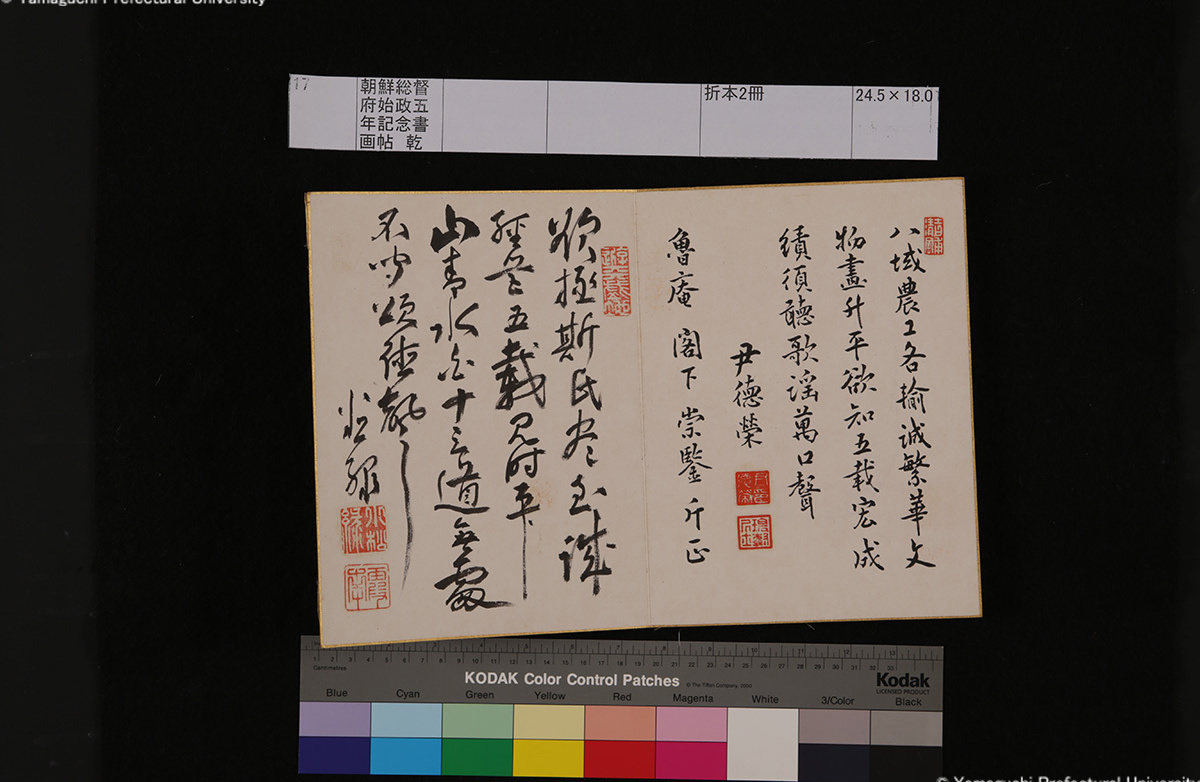 © Yamaguchi Prefectural University
17
朝鮮総督
府始政五
年記念書
画帖 乾
折本2冊
24.5×18.0
八域農工各輸誠繁華文
物盡升平欲知五載宏成
績須聽歌謡萬口聲
尹德榮
魯庵 閣下 崇鑒 斤正
欲拯斯民盡至誠
經營五載見時平
山青水白十三道無處
不聞頌德聲
松緑
小松
緑
Centimetres
KODAK Color Control Patches
© The Tiffen Company, 2000
Kodak
LICENSED PRODUCT
Blue Cyan Green Yellow Red Magenta White 3/Color Black
© Yamaguchi Prefectural University